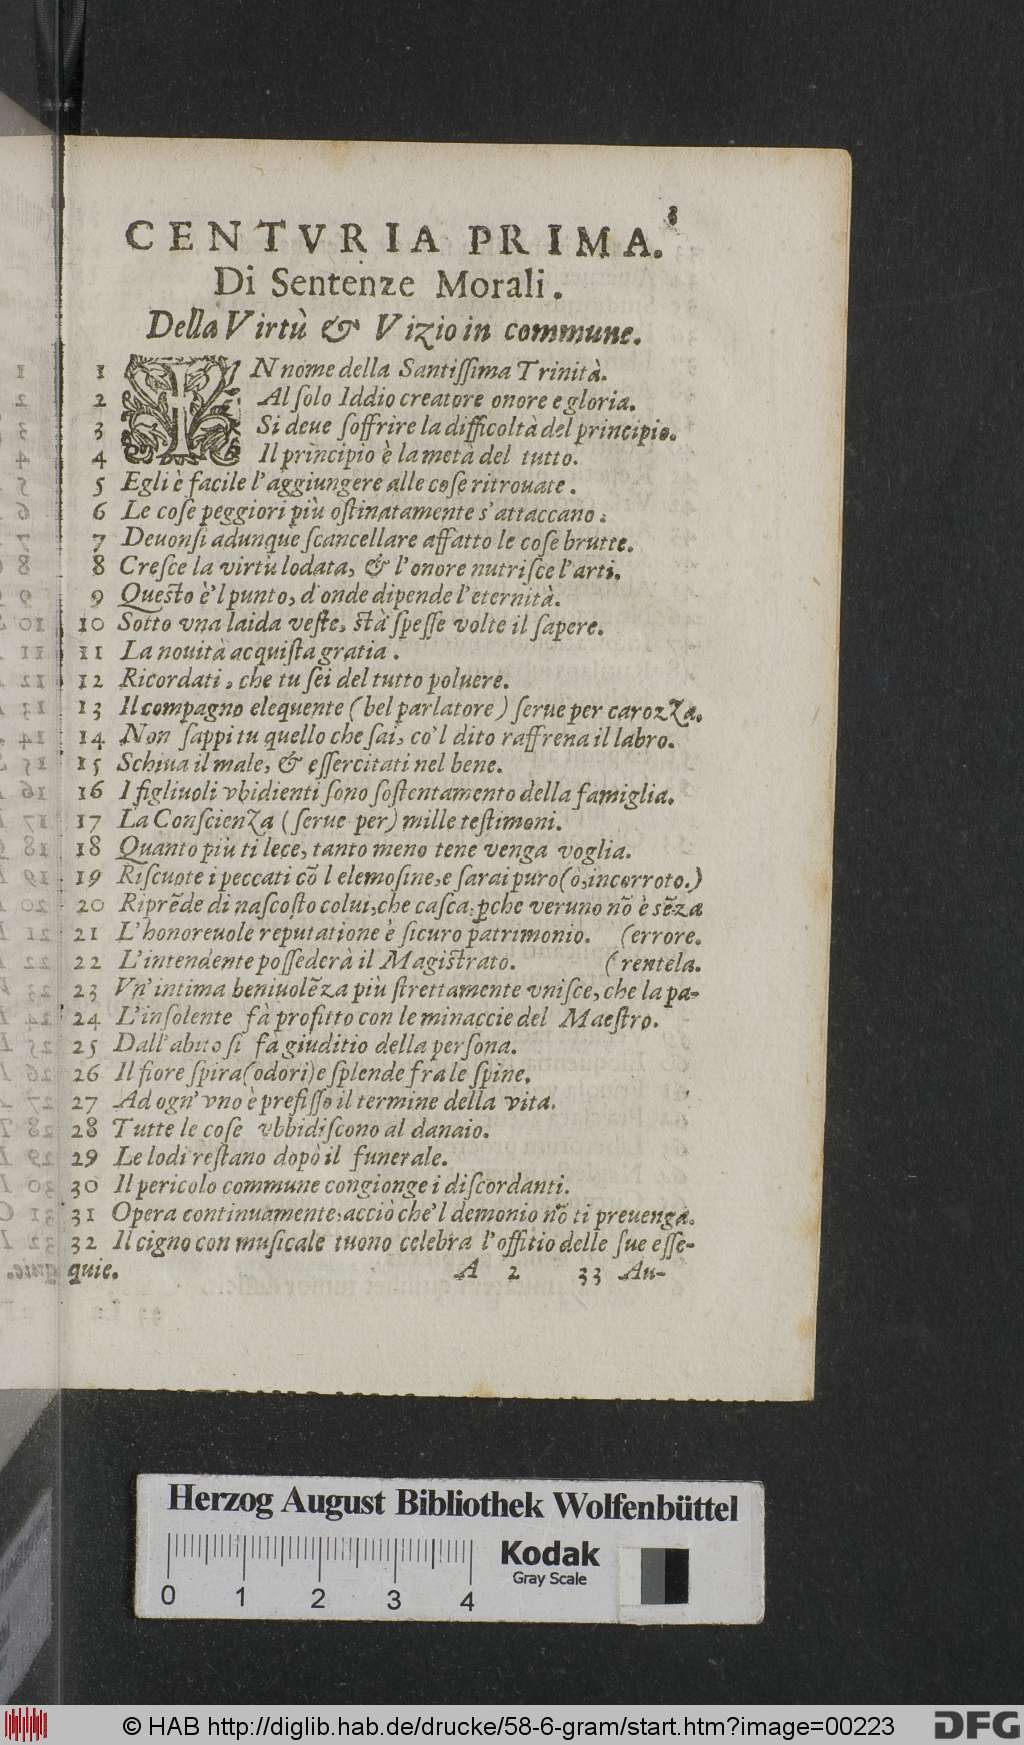 8
CENTVRIA PRIMA.
Di Sentenze Morali.
Della Virtù & Vizio in commune.
1 IN nome della Santiſſima Trinità.
2 Al ſolo Iddio creatore onore e gloria.
3 Si deue ſoffrire la difficoltà del principio.
4 Il principio è la metà del tutto.
5 Egli è facile l'aggiungere alle coſe ritrouate.
6 Le coſe peggiori più oſtinatamente s'attaccano.
7 Deuonſi adunque ſcancellare affatto le coſe brutte.
8 Creſce la virtù lodata, & l'onore nutriſce l'arti.
9 Queſto è'l punto, d'onde dipende l'eternità.
10 Sotto vna laida veſte, ſtà ſpeſſe volte il ſapere.
11 La nouità acquiſta gratia.
12 Ricordati, che tu ſei del tutto poluere.
13 Il compagno elequente (bel parlatore) ſerue per carozza.
14 Non ſappi tu quello che ſai, co'l dito raffrena il labro.
15 Schiua il male, & eſſercitati nel bene.
16 I figliuoli vbidienti ſono ſoſtentamento della famiglia.
17 La Conſcienza (ſerue per) mille teſtimoni.
18 Quanto più ti lece, tanto meno tene venga voglia.
19 Riſcuote i peccati cõ l elemoſine, e ſarai puro (ò, incorroto.)
20 Riprẽde di naſcoſto colui, che caſca, ꝑche veruno nõ è sẽza
21 L'honoreuole reputatione è ſicuro patrimonio. (errore.
22 L'intendente poſſederà il Magiſtrato. (rentela.
23 Vn'intima beniuolẽza più ſtrettamente vniſce, che la pa-
24 L'inſolente fà profitto con le minaccie del Maeſtro.
25 Dall'abito ſi fà giuditio della perſona.
26 Il fiore ſpira (odori) e ſplende fra le ſpine.
27 Ad ogn'vno è prefiſſo il termine della vita.
28 Tutte le coſe vbbidiſcono al danaio.
29 Le lodi reſtano dopò il funerale.
30 Il pericolo commune congionge i diſcordanti.
31 Opera continuamente, acciò che'l demonio nõ ti preuenga.
32 Il cigno con muſicale tuono celebra l'offitio delle ſue eſſe-
quie. A 2 33 Au-
Herzog August Bibliothek Wolfenbüttel
0 1 2 3 4
Kodak
Gray Scale
© HAB http://diglib.hab.de/drucke/58-6-gram/start.htm?image=00223
DFG